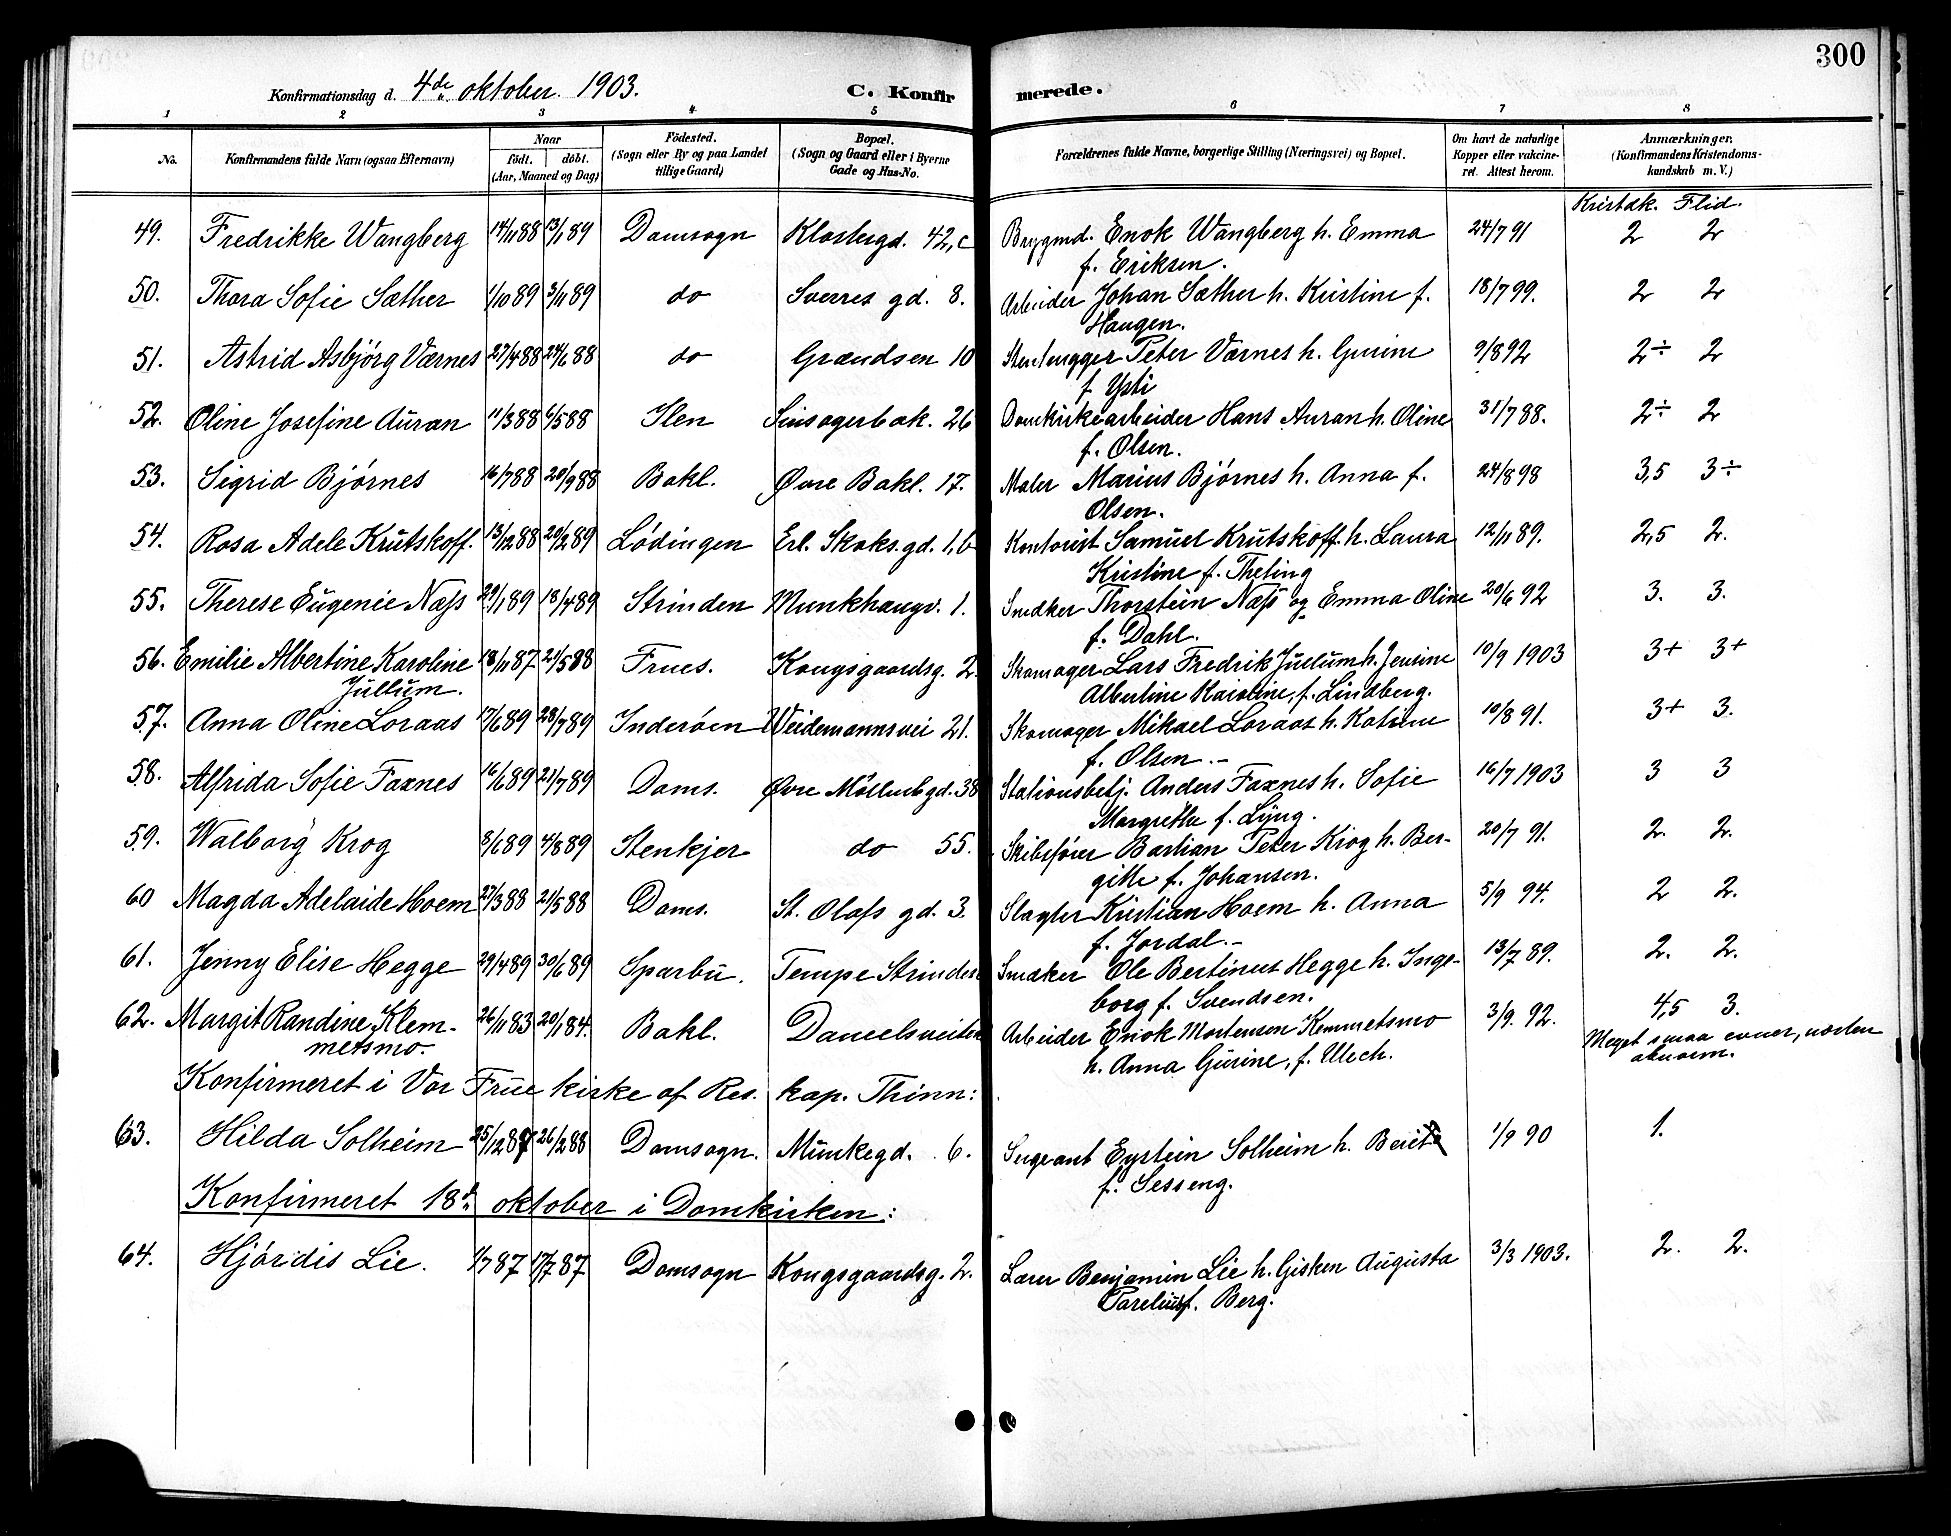 300
Konfirmationsdag d. 4de oktober. 1903. C. Konfirmerede.
1 2 3 4 5 6 7 8
No. Konfirmandens fulde Navn (ogsaa Efternavn) Naar født. døbt. (Aar, Maaned og Dag) Fødested. (Sogn eller By og paa Landet tillige Gaard) Bopæl. (Sogn og Gaard eller i Byerne Gade og Hus-No. Forældrenes fulde Navne, borgerlige Stilling (Næringsvei) og Bopæl. Om havt de naturlige Kopper eller vakcineret. Attest herom. Anmærkninger. (Konfirmandens Kristendomskundskab m. V.)
Kristdk. Flid.
49. Fredrikke Wangberg 14/11 88 13/1 89 Domsogn Klostergd. 42,c Brygmd. Enok Wangberg h. Emma 24/7 91 2 2
f. Eriksen.
50. Thora Sofie Sæther 1/10 89 3/11 89 do Sverres gd. 8. Arbeider Johan Sæther h. Kristine f. 18/7 99. 2 2
Haugen.
51. Astrid Asbjørg Værnes 27/4 88 24/6 88 do Grændsen 10 Stenhugger Peter Værnes h. Gurine 9/8 92 2÷ 2
f. Ysti
52. Oline Josefine Auran 11/3 88 6/5 88 Ilen Sinsagerbak. 26 Domkirkearbeider Hans Auran h. Oline 31/7 88. 2÷ 2
f. Olsen.
53. Sigrid Bjørnes 16/7 88 20/9 88 Bakl. Øvre Bakl. 17. Maler Marius Bjørnes h. Anna f. 24/8 98 3,5 3÷
Olsen.
54. Rosa Adele Krutskoff. 13/12 88 20/2 89 Lødingen Erl. Skaks.gd. 1,b Kontorist Samuel Krutskoff. h. Laura 12/11 89. 2,5 2.
Kristine f. Theting
55. Therese Eugenie Næss 29/1 89 18/4 89 Strinden Munkhaugv. 1. Snedker Thorstein Næss og Emma Oline 20/6 92 3. 3.
f. Dahl.
56. Emilie Albertine Karoline 18/11 87 21/5 88 Frues. Kongsgaardsg. 2. Skomager Lars Fredrik Jullum h. Jensine 10/9 1903 3+ 3+
Jullum. Albertine Karoline, f. Lindberg.
57. Anna Oline Loraas 17/6 89 28/7 89 Inderøen Weidemannsvei 21. Skomager Mikael Loraas h. Katrine 10/8 91. 3+ 3.
f. Olsen.-
58. Alfrida Sofie Faxnes 16/6 89 21/7 89 Doms. Øvre Møllenbgd. 38 Stationsbetj. Anders Faxnes h. Sofie 16/7 1903 3 3
Margrethe f. Lyng.
59. Walborg Krog 8/6 89 4/8 89 Stenkjer do 55. Skibsfører Bastian Peter Krog h. Ber- 20/7 91. 2. 2.
gitte f. Johansen.
60 Magda Adelaide Hoem 27/3 88 21/5 88 Doms. St. Olafs gd. 3. Slagter Kristian Hoem h. Anna 5/9 94. 2 2.
f. Jordal.-
61. Jenny Elise Hegge 29/4 89 30/6 89 Sparbu. Tempe Strinden Snedker Ole Bertinus Hegge h. Inge- 13/7 89. 2. 2.
borg f. Svendsen.
62. Margit Randine Klem- 26/11 83 20/1 84. Bakl. Danielsveiten Arbeider Enok Mortensen Kemmetsmo 3/9. 92. 4,5 3.
metsmo. h. Anna Gurine, f. Ulech. Meget smaa evner, næsten abnorm.
Konfirmeret i Vor Frue kirke af Res. kap. Thinn:
63. Hilda Solheim 25/12 87 26/2 88 Domsogn. Munkegd. 6. Sergeant Eystein Solheim h. Berit 1/9 90 1.
f. Sesseng.
Konfirmeret 18de oktober i Domkirken:
64. Hjørdis Lie. 1/7 87 17/7 87 Domsogn Kongsgaardsg. 2. Lærer Benjamin Lie h. Gisken Augusta 3/3 1903. 2. 2.
Parelius f. Berg.